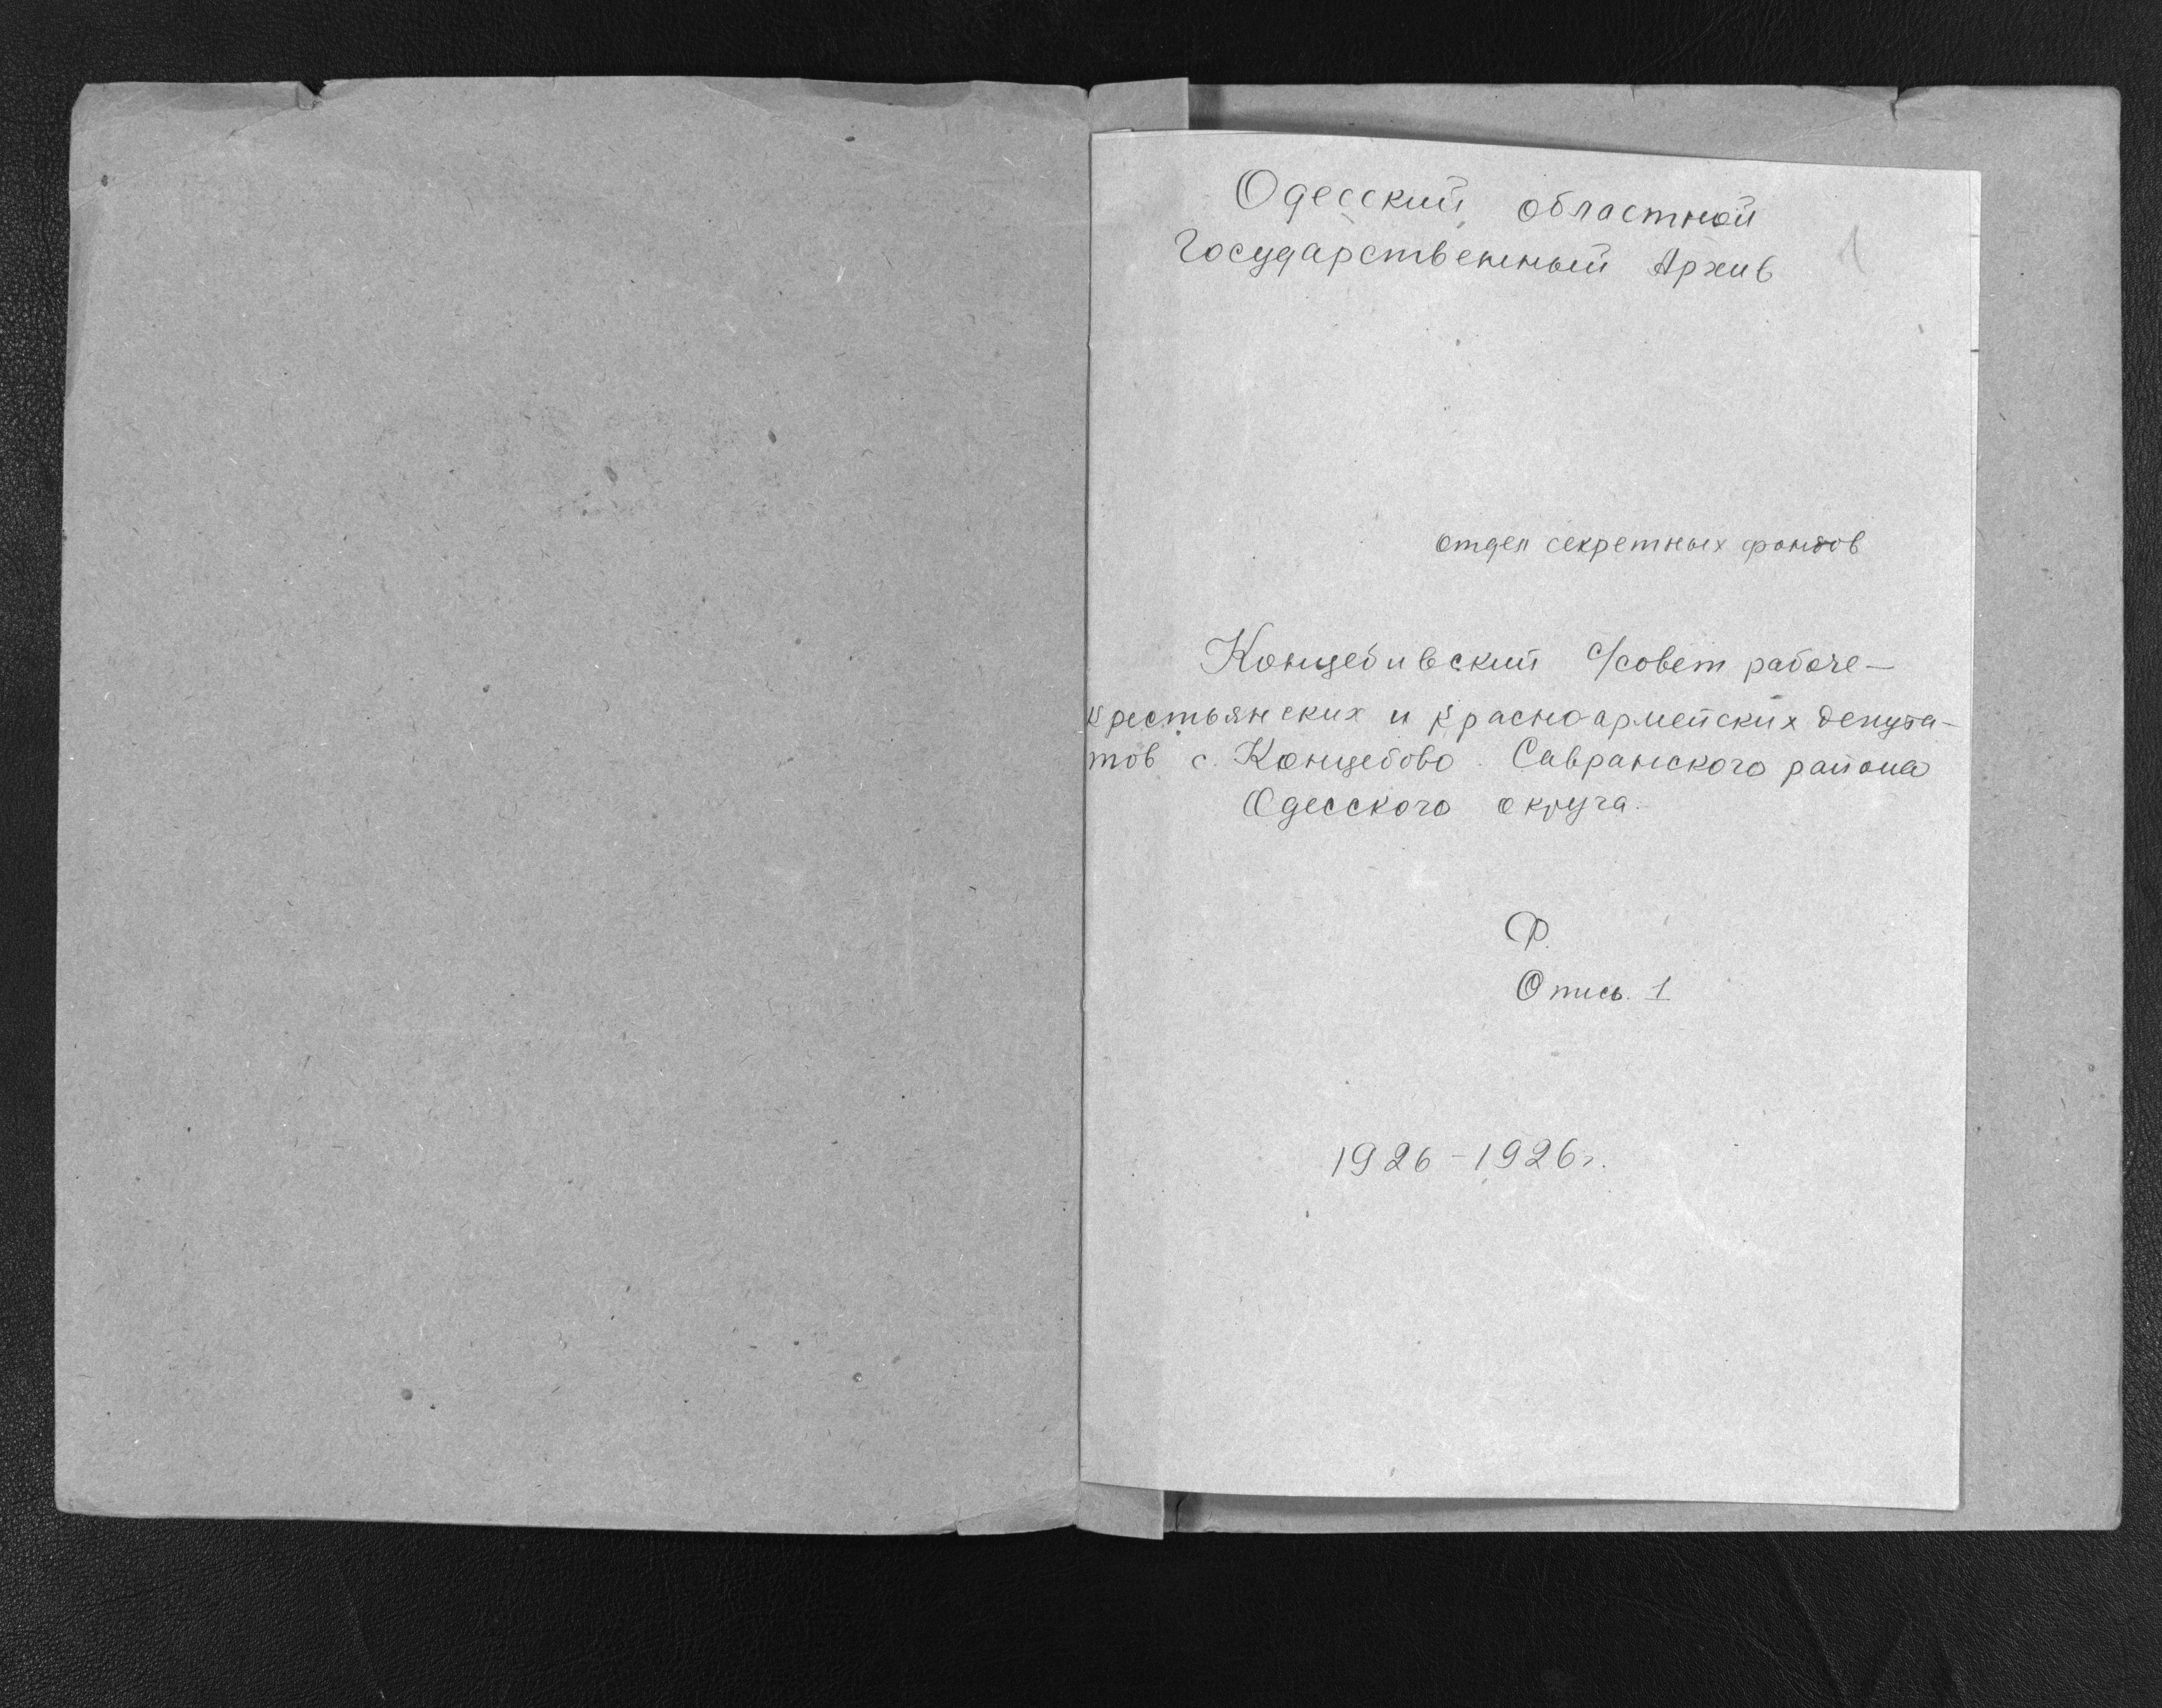 Одесский областной
Государственный Архив
1
отдел секретных фондов
Концебивский с/совет рабоче-
крестьянских и красноармейских депута-
тов с. Концебово Савранского района
Одесского округа.
Ф.
Опись. 1
1926-1926г.